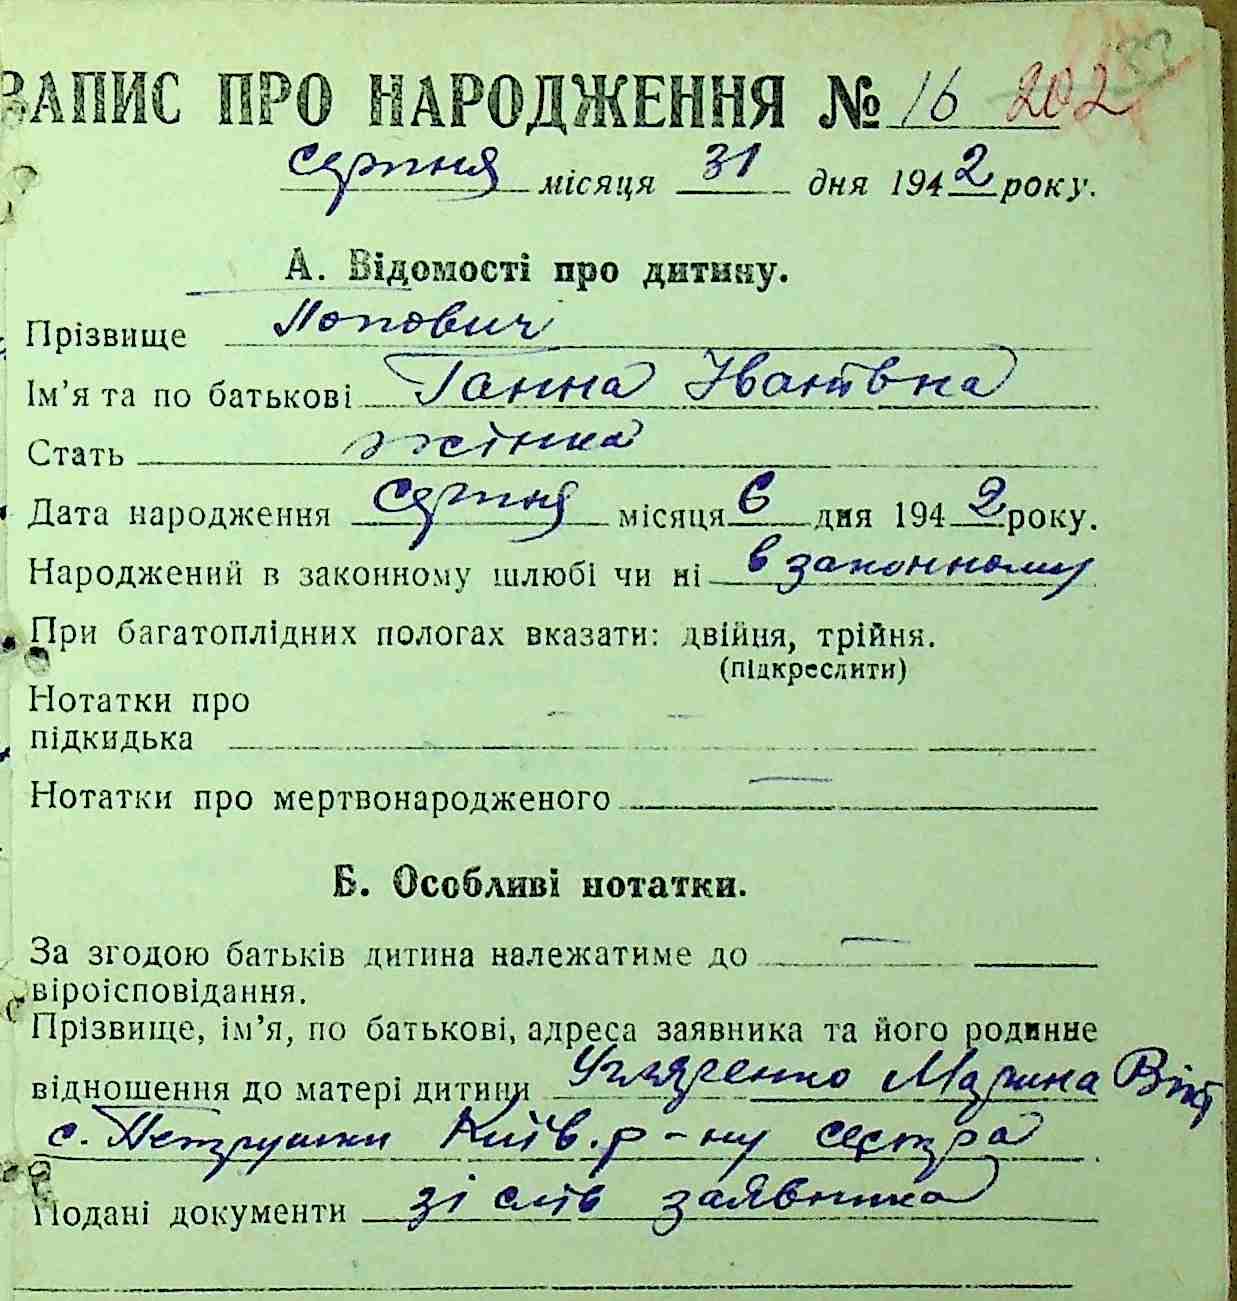 ЗАПИС ПРО НАРОДЖЕННЯ № 16 202
серпня місяця 31 дня 1942 року.
А. Відомості про дитину.
Прізвище Попович
Ім'я та по батькові Ганна Іванівна
Стать жінка
Дата народження серпня місяця 6 дня 1942 року.
Народжений в законному шлюбі чи ні в законному
При багатоплідних пологах вказати: двійня, трійня.
(підкреслити)
Нотатки про
підкидька — —
Нотатки про мертвонародженого —
Б. Особливі нотатки.
За згодою батьків дитина належатиме до —
віроісповідання.
Прізвище, ім'я, по батькові, адреса заявника та його родинне
відношення до матері дитини Марина Вікт
с. Петрушки Київ. р-ну сестра
Подані документи зі слів заявника